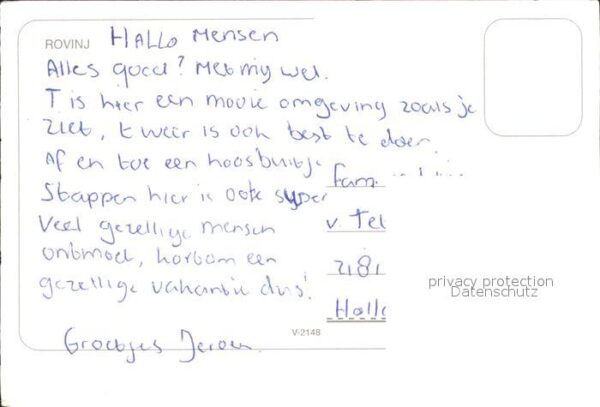 ROVINJ HALLO Mensen
Alles goed? Met mij wel.
T is hier een mooie omgeving zoals je
ziet, t weer is ook best te doen.
Af en toe een hoosbuitje
Stappen hier is ook super
Veel gezellige mensen
ontmoet, kortom een
gezellige vakantie dus!
Groetjes Jeroen.
fam.
v. Tel
2181
Holla
V-2148
privacy protection
Datenschutz